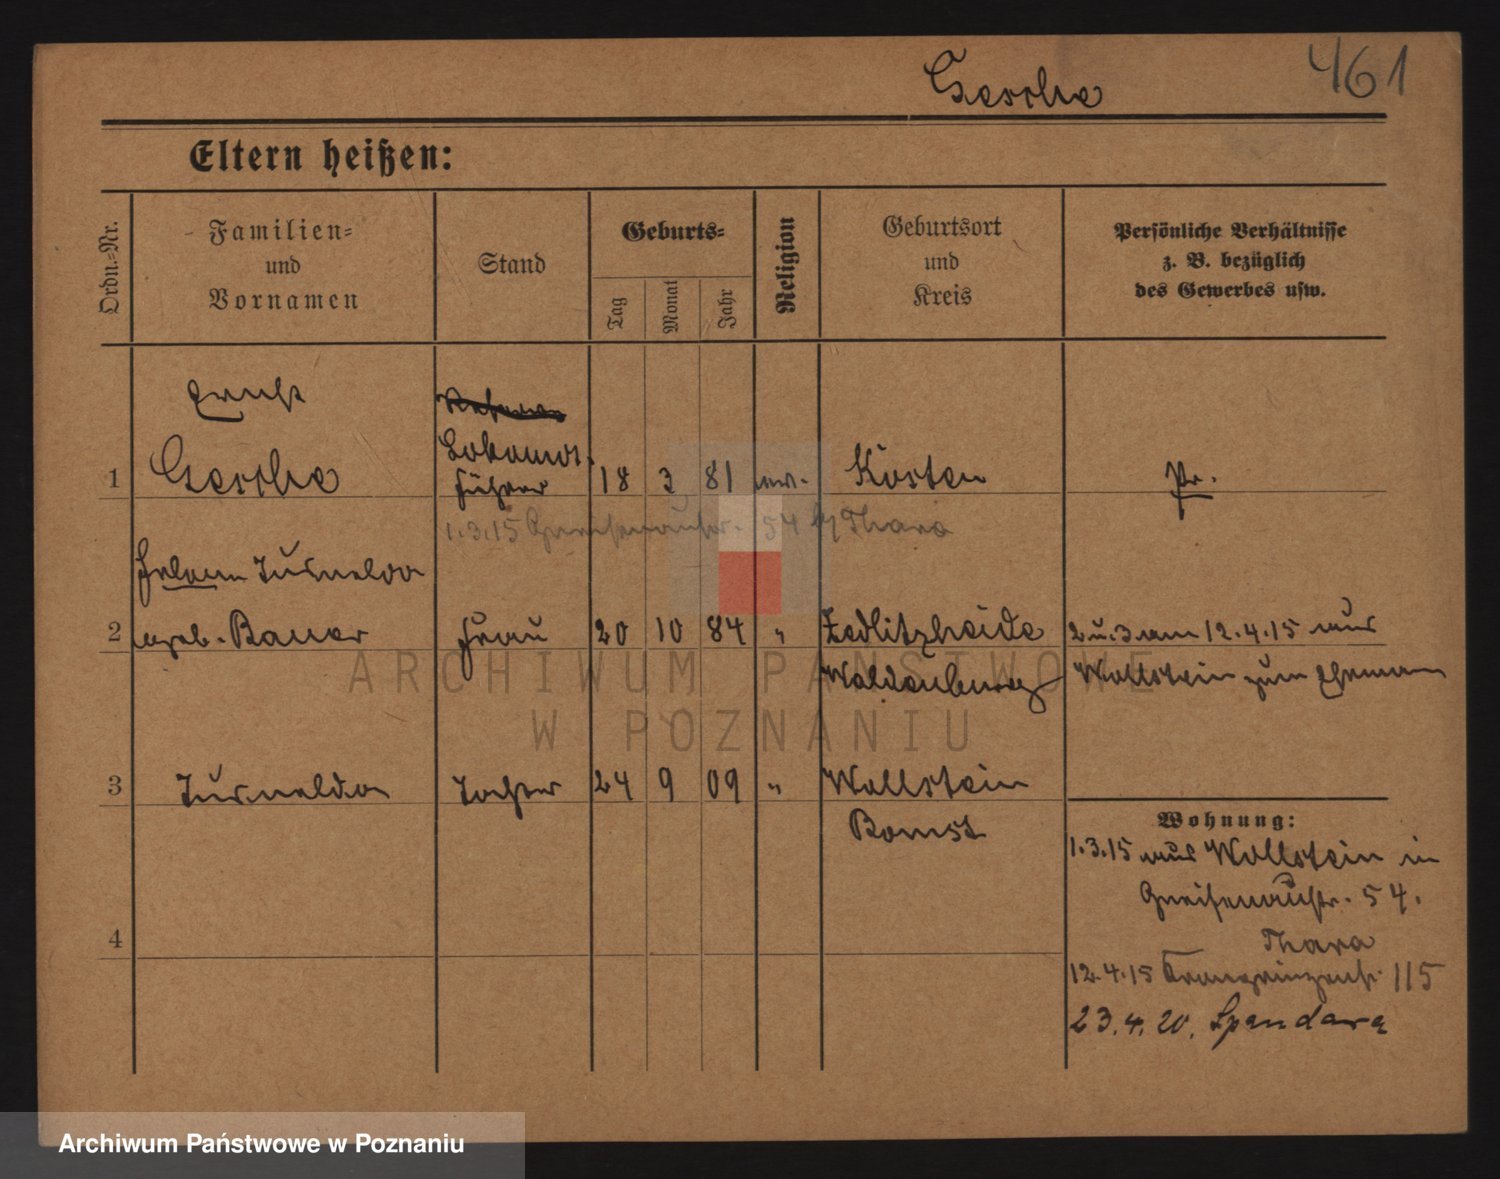 Gesche
461
Eltern heißen:
Ordn.-Nr.
Familien-
und
Vornamen
Stand
Geburts-
Tag
Monat
Jahr
Religion
Geburtsort
und
Kreis
Persönliche Verhältnisse
z. B. bezüglich
des Gewerbes usw.
Ernst
1 Gesche
Lokomot.
führer 18 3 81 ev. Kosten Pr.
1.3.15 Gneisenaustr. 54 b/ Thara
Helene Tusnelda
2 geb. Bauer Frau 20 10 84 " Zedlitzheide 2 u. 3 am 12.4.15 aus
Waldenburg Wollstein zum Ehemann
3 Tusnelda Tochter 24 9 09 " Wollstein
Bomst
Wohnung:
1.3.15 aus Wollstein in
Gneisenaustr. 54.
Thara
4
12.4.15 Kronprinzenstr. 115
23.4.20. Spandau
ARCHIWUM PAŃSTWOWE
W POZNANIU
Archiwum Państwowe w Poznaniu